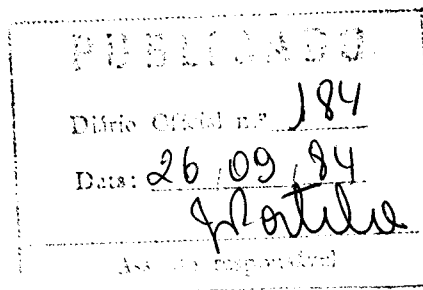 PUBLICADO
Diário Oficial n.º 184
Data: 26/09/84
Ass. do responsável